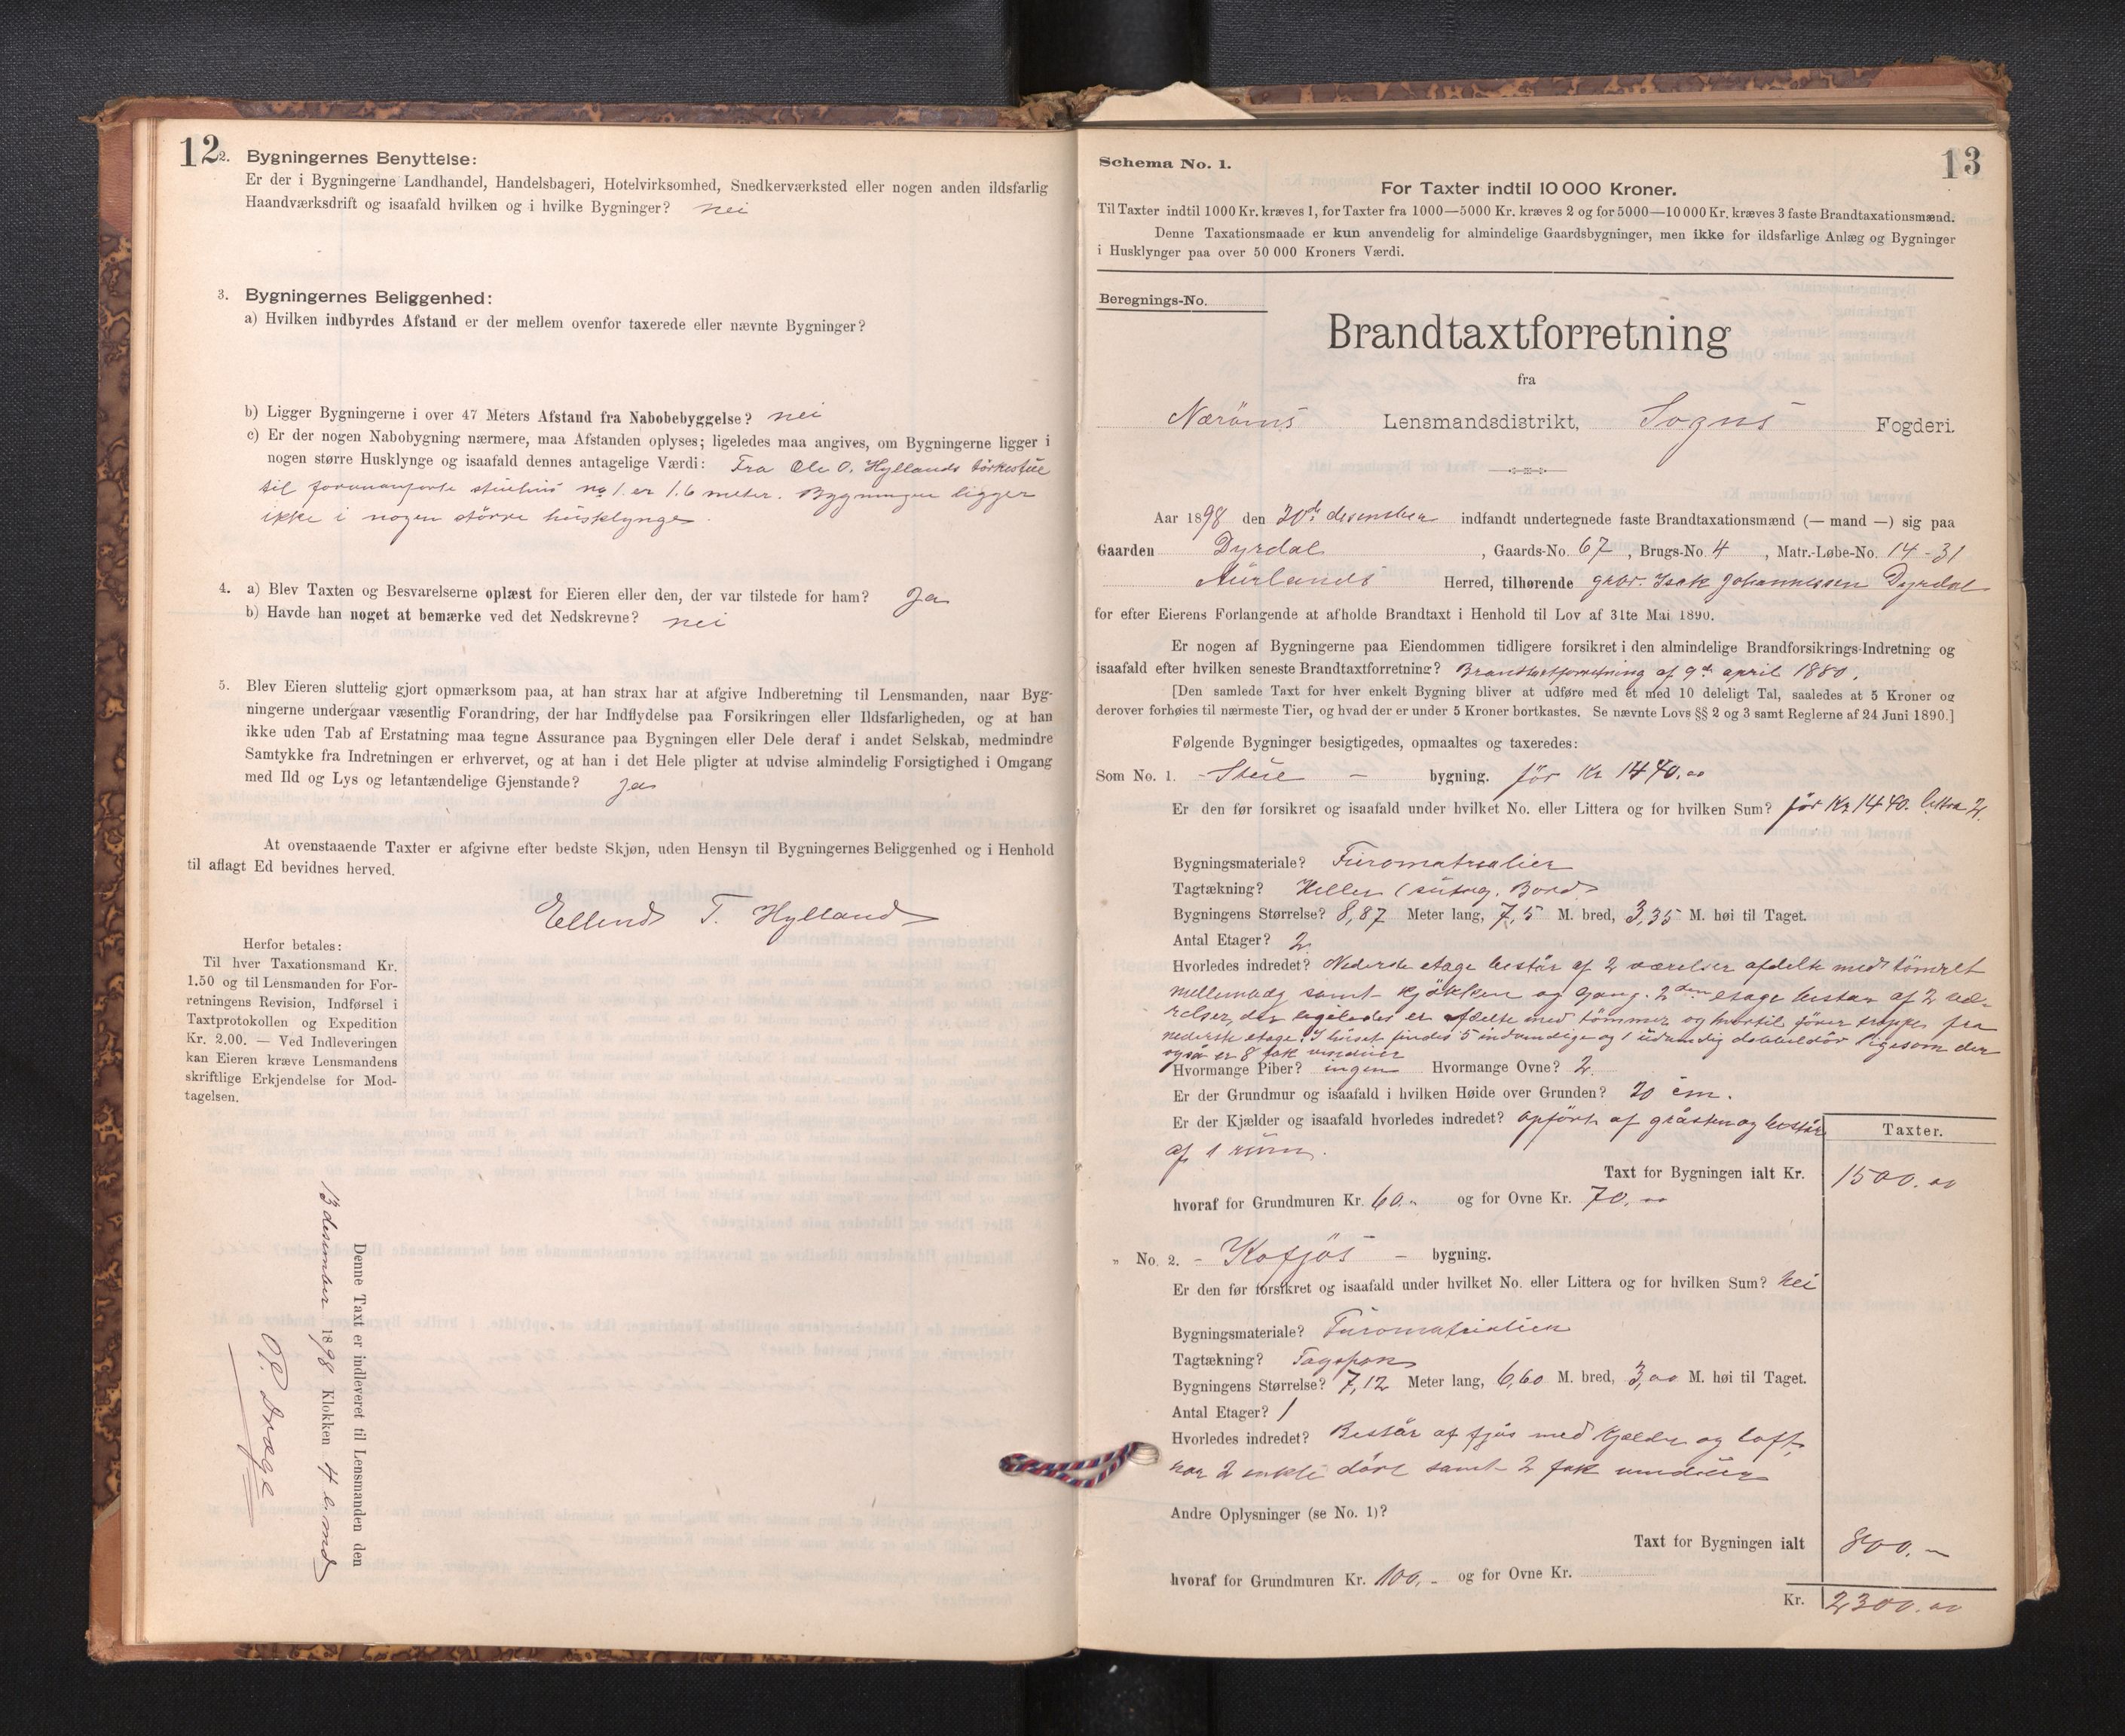 12
2. Bygningernes Benyttelse:
Er der i Bygningerne Landhandel, Handelsbageri, Hotelvirksomhed, Snedkerværksted eller nogen anden ildsfarlig
Haandværksdrift og isaafald hvilken og i hvilke Bygninger? nei
3. Bygningernes Beliggenhed:
a) Hvilken indbyrdes Afstand er der mellem ovenfor taxerede eller nævnte Bygninger?
b) Ligger Bygningerne i over 47 Meters Afstand fra Nabobebyggelse? nei
c) Er der nogen Nabobygning nærmere, maa Afstanden oplyses; ligeledes maa angives, om Bygningerne ligger i
nogen større Husklynge og isaafald dennes antagelige Værdi: Fra Ole O. Hyllands törkestue
til forannanförte stuehus no 1. er 1.6 meter. Bygningen ligger
ikke i nogen större husklynge.
4. a) Blev Taxten og Besvarelserne oplæst for Eieren eller den, der var tilstede for ham? Ja
b) Havde han noget at bemærke ved det Nedskrevne? nei
5. Blev Eieren sluttelig gjort opmærksom paa, at han strax har at afgive Indberetning til Lensmanden, naar Byg-
ningerne undergaar væsentlig Forandring, der har Indflydelse paa Forsikringen eller Ildsfarligheden, og at han
ikke uden Tab af Erstatning maa tegne Assurance paa Bygningen eller Dele deraf i andet Selskab, medmindre
Samtykke fra Indretningen er erhvervet, og at han i det Hele pligter at udvise almindelig Forsigtighed i Omgang
med Ild og Lys og letantændelige Gjenstande? Ja
At ovenstaaende Taxter er afgivne efter bedste Skjøn, uden Hensyn til Bygningernes Beliggenhed og i Henhold
til aflagt Ed bevidnes herved.
Ellend T. Hylland
Herfor betales:
Til hver Taxationsmand Kr.
1.50 og til Lensmanden for For-
retningens Revision, Indførsel i
Taxtprotokollen og Expedition
Kr. 2.00. — Ved Indleveringen
kan Eieren kræve Lensmandens
skriftlige Erkjendelse for Mod-
tagelsen.
Denne Taxt er indleveret til Lensmanden den
13 desember 1898 Klokken 4 e. md
O.P. Dræge
Schema No. 1.
13
For Taxter indtil 10 000 Kroner.
Til Taxter indtil 1000 Kr. kræves 1, for Taxter fra 1000—5000 Kr. kræves 2 og for 5000—10 000 Kr. kræves 3 faste Brandtaxationsmænd.
Denne Taxationsmaade er kun anvendelig for almindelige Gaardsbygninger, men ikke for ildsfarlige Anlæg og Bygninger
i Husklynger paa over 50 000 Kroners Værdi.
Beregnings-No.
Brandtaxtforretning
fra
Næröens Lensmandsdistrikt, Sogns Fogderi.
Aar 1898 den desember indfandt undertegnede faste Brandtaxationsmænd (— mand —) sig paa
Gaarden Dyrdal, Gaards-No. 67, Brugs-No. 4, Matr.-Løbe-No. 14-31
Aurlands Herred, tilhørende gbr. Isak Johannessen Dyrdal
for efter Eierens Forlangende at afholde Brandtaxt i Henhold til Lov af 31te Mai 1890.
Er nogen af Bygningerne paa Eiendommen tidligere forsikret i den almindelige Brandforsikrings-Indretning og
isaafald efter hvilken seneste Brandtaxtforretning? Brandtaxtforretning af 9de april 1880.
[Den samlede Taxt for hver enkelt Bygning bliver at udføre med ét med 10 deleligt Tal, saaledes at 5 Kroner og
derover forhøies til nærmeste Tier, og hvad der er under 5 Kroner bortkastes. Se nævnte Lovs §§ 2 og 3 samt Reglerne af 24 Juni 1890.]
Følgende Bygninger besigtigedes, opmaaltes og taxeredes:
Som No. 1. - Stue - bygning. för Kr 1440.00
Er den før forsikret og isaafald under hvilket No. eller Littera og for hvilken Sum? för Kr 1440. littra 2.
Bygningsmateriale? Furomaterialier
Tagtækning? Heller (sutag. Bord)
Bygningens Størrelse? 8,87 Meter lang, 7,5 M. bred, 3,35 M. høi til Taget.
Antal Etager? 2
Hvorledes indredet? Nederste etage består af 2 værelser afdelte med tömret
mellemvæg samt kjökken og gang. 2den etage bestar af 2 væ-
relser, der ligeledes er afdelte med tömmer og hvortil förer trappe fra
nederste etage. I huset findes 5 indvendige og 1 udvendig dobbeldör ligesom der
også er 8 fak vinduer
Hvormange Piber? ingen Hvormange Ovne? 2.
Er der Grundmur og isaafald i hvilken Høide over Grunden? 20 cm.
Er der Kjælder og isaafald hvorledes indredet? Opfört af gråsten og består
af 1 rum.
Taxter.
Taxt for Bygningen ialt Kr. 1500.00
hvoraf for Grundmuren Kr. 60.- og for Ovne Kr. 70.00
„ No. 2. - Kofjös - bygning.
Er den før forsikret og isaafald under hvilket No. eller Littera og for hvilken Sum? Nei
Bygningsmateriale? Furomaterialier
Tagtækning? Tagspon
Bygningens Størrelse? 7,12 Meter lang, 6,60 M. bred, 3,00 M. høi til Taget.
Antal Etager? 1
Hvorledes indredet? Består af fjös med kjelder og loft,
har 2 enkle döre samt 2 fak vinduer
Andre Oplysninger (se No. 1)?
Taxt for Bygningen ialt 800.-
hvoraf for Grundmuren Kr. 100.- og for Ovne Kr.
Kr. 2300.00